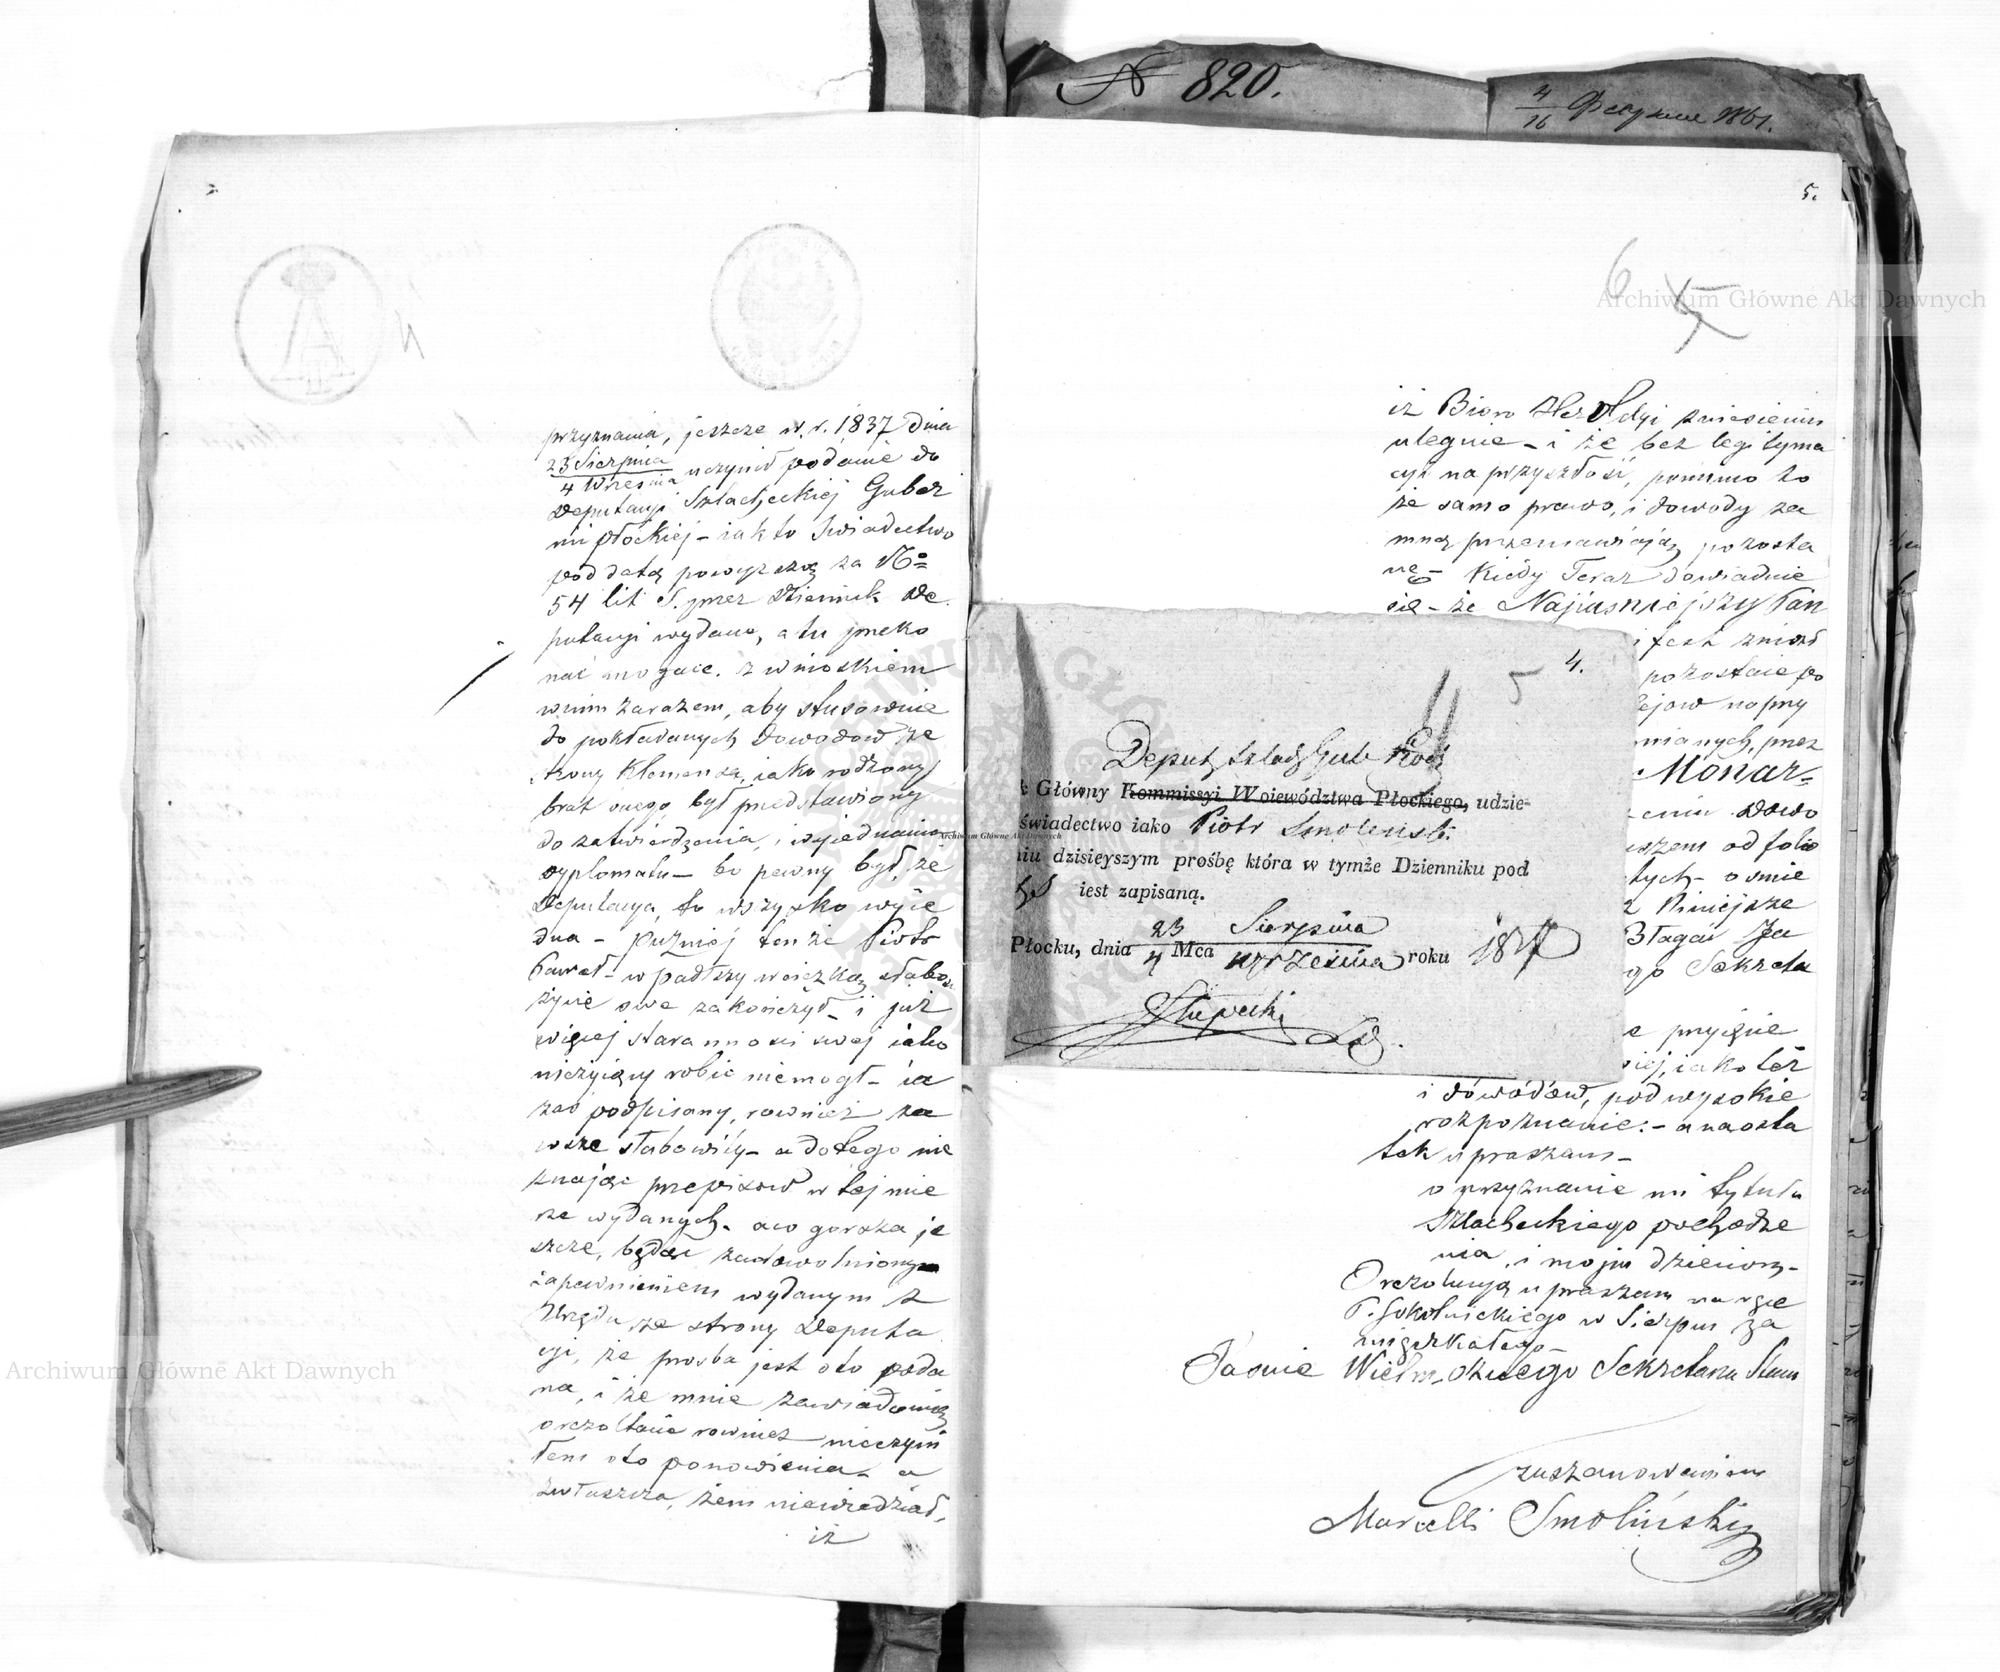 N 820.
4/16 1861.
przyznania, jeszcze w. r. 1837 dnia
23 Sierpnia
4 Września uczynił podanie do
Deputacyi Szlacheckiej Guber
ni płockiej – jak to świadectwo
pod datą powyższą za No
54 lit S. przez Dziennik De
putacyi wydane, a tu przeko
nać mogące. z wnioskiem
w nim zarazem, aby stosownie
do pokładanych Dowodów, ze
strony Klemensa, jako rodzony
brat onego był przedstawiony
do zatwierdzenia, i wyjednania
dyplomatu – bo pewny był, że
Deputacya, to wszystko wyje
dna – Puzniej tenże Piotr
Paweł – wpadłszy w ciężką słabość
życie swe zakończył – i już
więcej staranności swej jako
nieżyjący robić niemogł – ja
zaś podpisany, rownież za
wsze słabowity – a do tego nie
znając przepisow w tej mie
rze wydanych – a co gorsza je
szcze, będąc zadowolniony
zapewnieniem wydanym z
Urzędu ze strony Deputa
cyi, że prosba jest oto poda
na, i że mnie zawiadomią
o rezoltacie rownież nieczyni
łem oto ponowienia – a
zwłaszcza, żem niewiedział,
iż
5.
6 5
iż Biuro Heroldyi zniesieniu
ulegnie – i że bez legityma
cyi na przyszłość, pomimo to
że samo prawo, i dowody za
mną przemawiającą pozosta
ną – Kiedy Teraz dowiaduje
się – że Najjaśniejszy Pan
ifest zniosł
pozostaie po
ejow napry
mianych, przez
Monar=
eniu dowo
uszem od folio
tych – osmie
z Niniejsze
Błagać Ja
go Sekreta
e przyjęcie
iej, iako też
i dowodow, pod wysokie
rozpoznanie. – a na osta
tek upraszam –
o przyznanie mi tytułu
Szlacheckiego pochodze
nia, i mojm dzieciom –
O rezolucyą upraszam na ręce
P. Sokolnickiego w Sierpcu za
mięszkałego –
Jaśnie Wielmożnego Sekretarza Stanu
z uszanowaniem
Marcelli Smoliński
5 4.
Deput Szlach Gub Płock
k Główny Kommissyi Woiewództwa Płockiego, udzie-
świadectwo iako Piotr Smoleński
niu dzisieyszym prośbę która w tymże Dzienniku pod
iest zapisaną.
Płocku, dnia 23/4 Mca Sierpnia/września roku 1837
Słupecki
Archiwum Główne Akt Dawnych
Archiwum Główne Akt Dawnych
Archiwum Główne Akt Dawnych